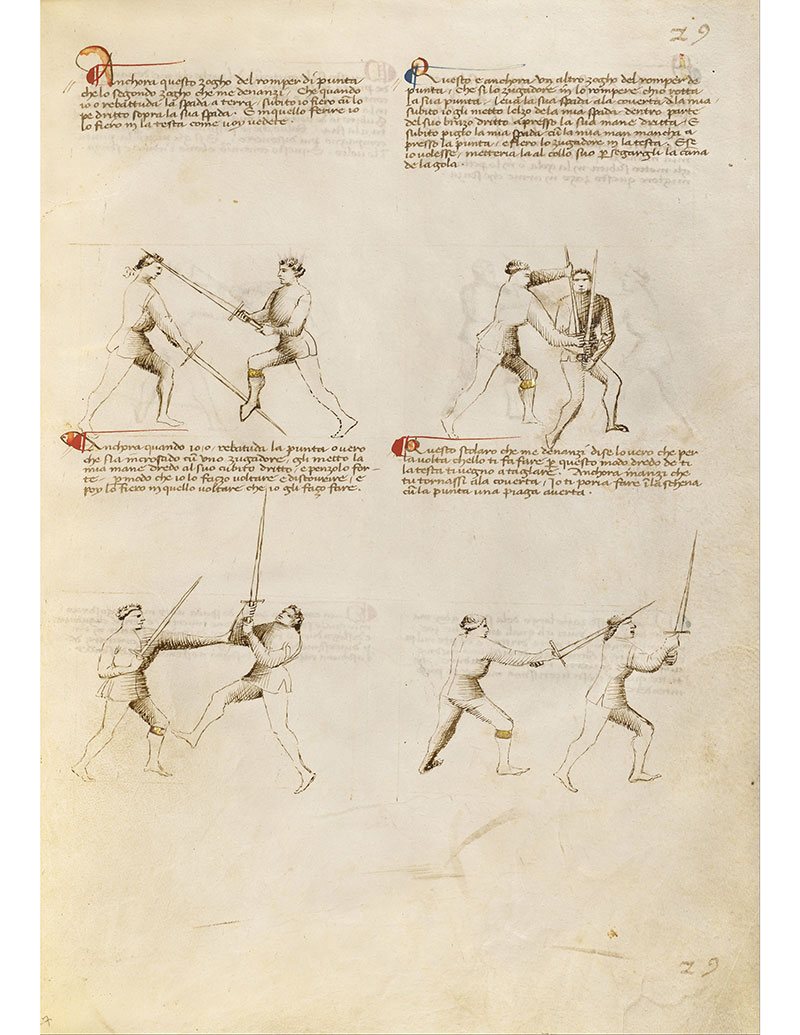 29
Anchora questo zogho del romper di punta
che lo segondo zogho che me denanzi / Che quando
io o rebattuda la spada a terra / subito io fiero cu lo
pe dritto sopra la sua spada. E in quello ferire io
lo fiero in la testa come voy vedete.
Questo e anchora un altro zogho del romper de
punta / che si lo zugadore in lo rompere ch'io o rotta
la sua punta / leva la sua spada ala coverta dla mia /
subito io gli metto l'elzo de la mia spada dentro parte
del suo brazo dritto apresso la sua mane dritta / E
subito piglo la mia spada cu la mia man mancha a
presso la punta / e fiero lo zugadore in la testa. E se
io volesse / metteria la al collo suo p segargli la cana
de la gola.
Anchora quando io o / rebatuda la punta o vero
che sia incrosado cu uno zugadore / gli metto la
mia mane dredo al suo cubito dritto e penzolo for-
te p modo che io lo fazo voltare e discovrire / e
poy lo fiero in quello voltare che io gli fazo fare.
Questo scolaro che me denanzi dise lo vero che per
la volta ch'ello ti fa fare p questo modo dredo de ti
la testa ti vegno a taglare. Anchora inanzi che
tu tornassi ala coverta / Io ti poria fare i la schena
cu la punta una piaga averta.
29